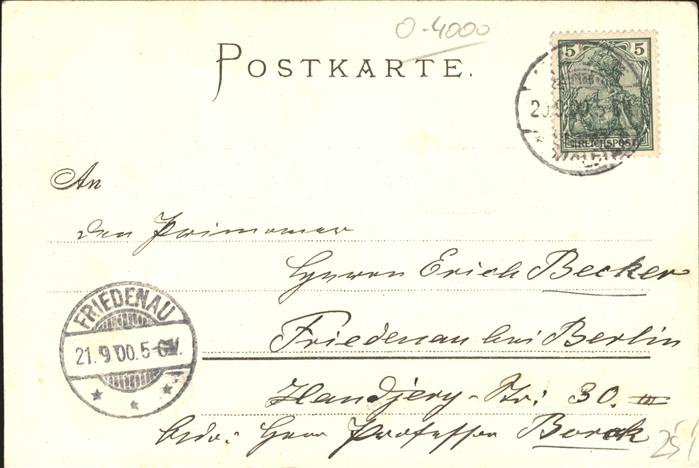 0-4000
POSTKARTE.
5 5
REICHSPOST
An
den Primaner
Herrn Erich Becker
FRIEDENAU
21.9.00.5-6N.
Friedenau bei Berlin
Handjery-Str: 30. III
Adr: Herr Professor
25